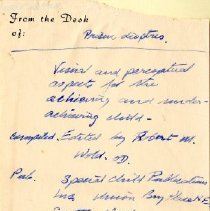 From the Desk
of: Prism dioptres.
Visual and perceptual
aspects for the
achieving and under-
achieving child -
compiled. Edited by Robert M.
Wold. OD.
Pub. Special Child Publications
Inc. Union Bay Place N.E.